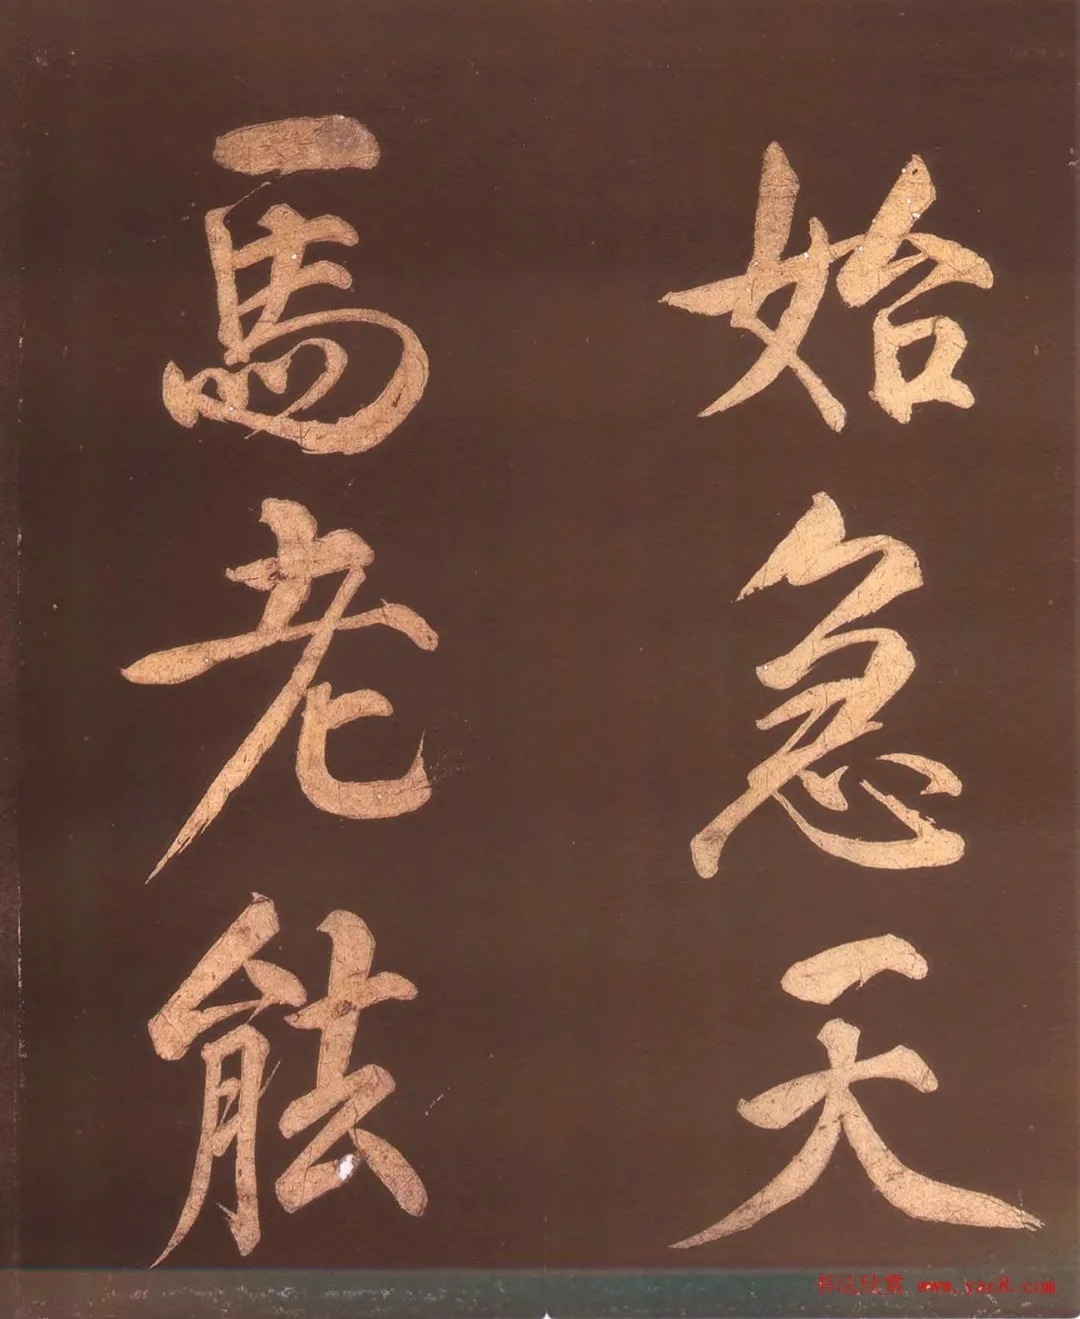 始急天
馬老能
书法欣赏 www.yac8.com